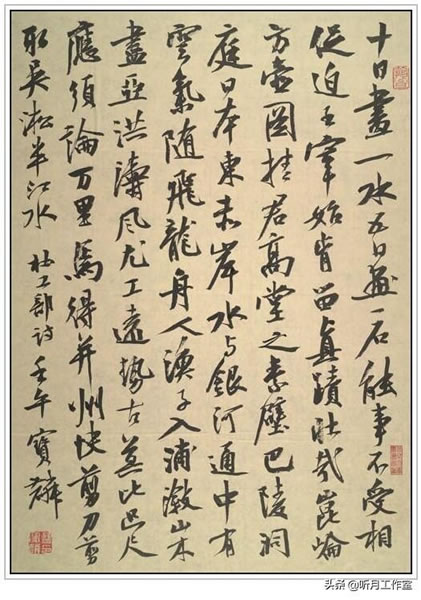 十日畫一水五日画一石能事不受相
促迫王宰始肯留真蹟壮哉崑崙
方壺圖挂君高堂之素壁巴陵洞
庭日本東赤岸水与銀河通中有
雲氣随飛龍舟人漁子入浦漵山木
盡亞洪濤風尤工遠勢古莫比咫尺
應須論万里焉得并州快剪刀剪
取吴淞半江水 杜工部詩 壬午寶
头条 @听月工作室